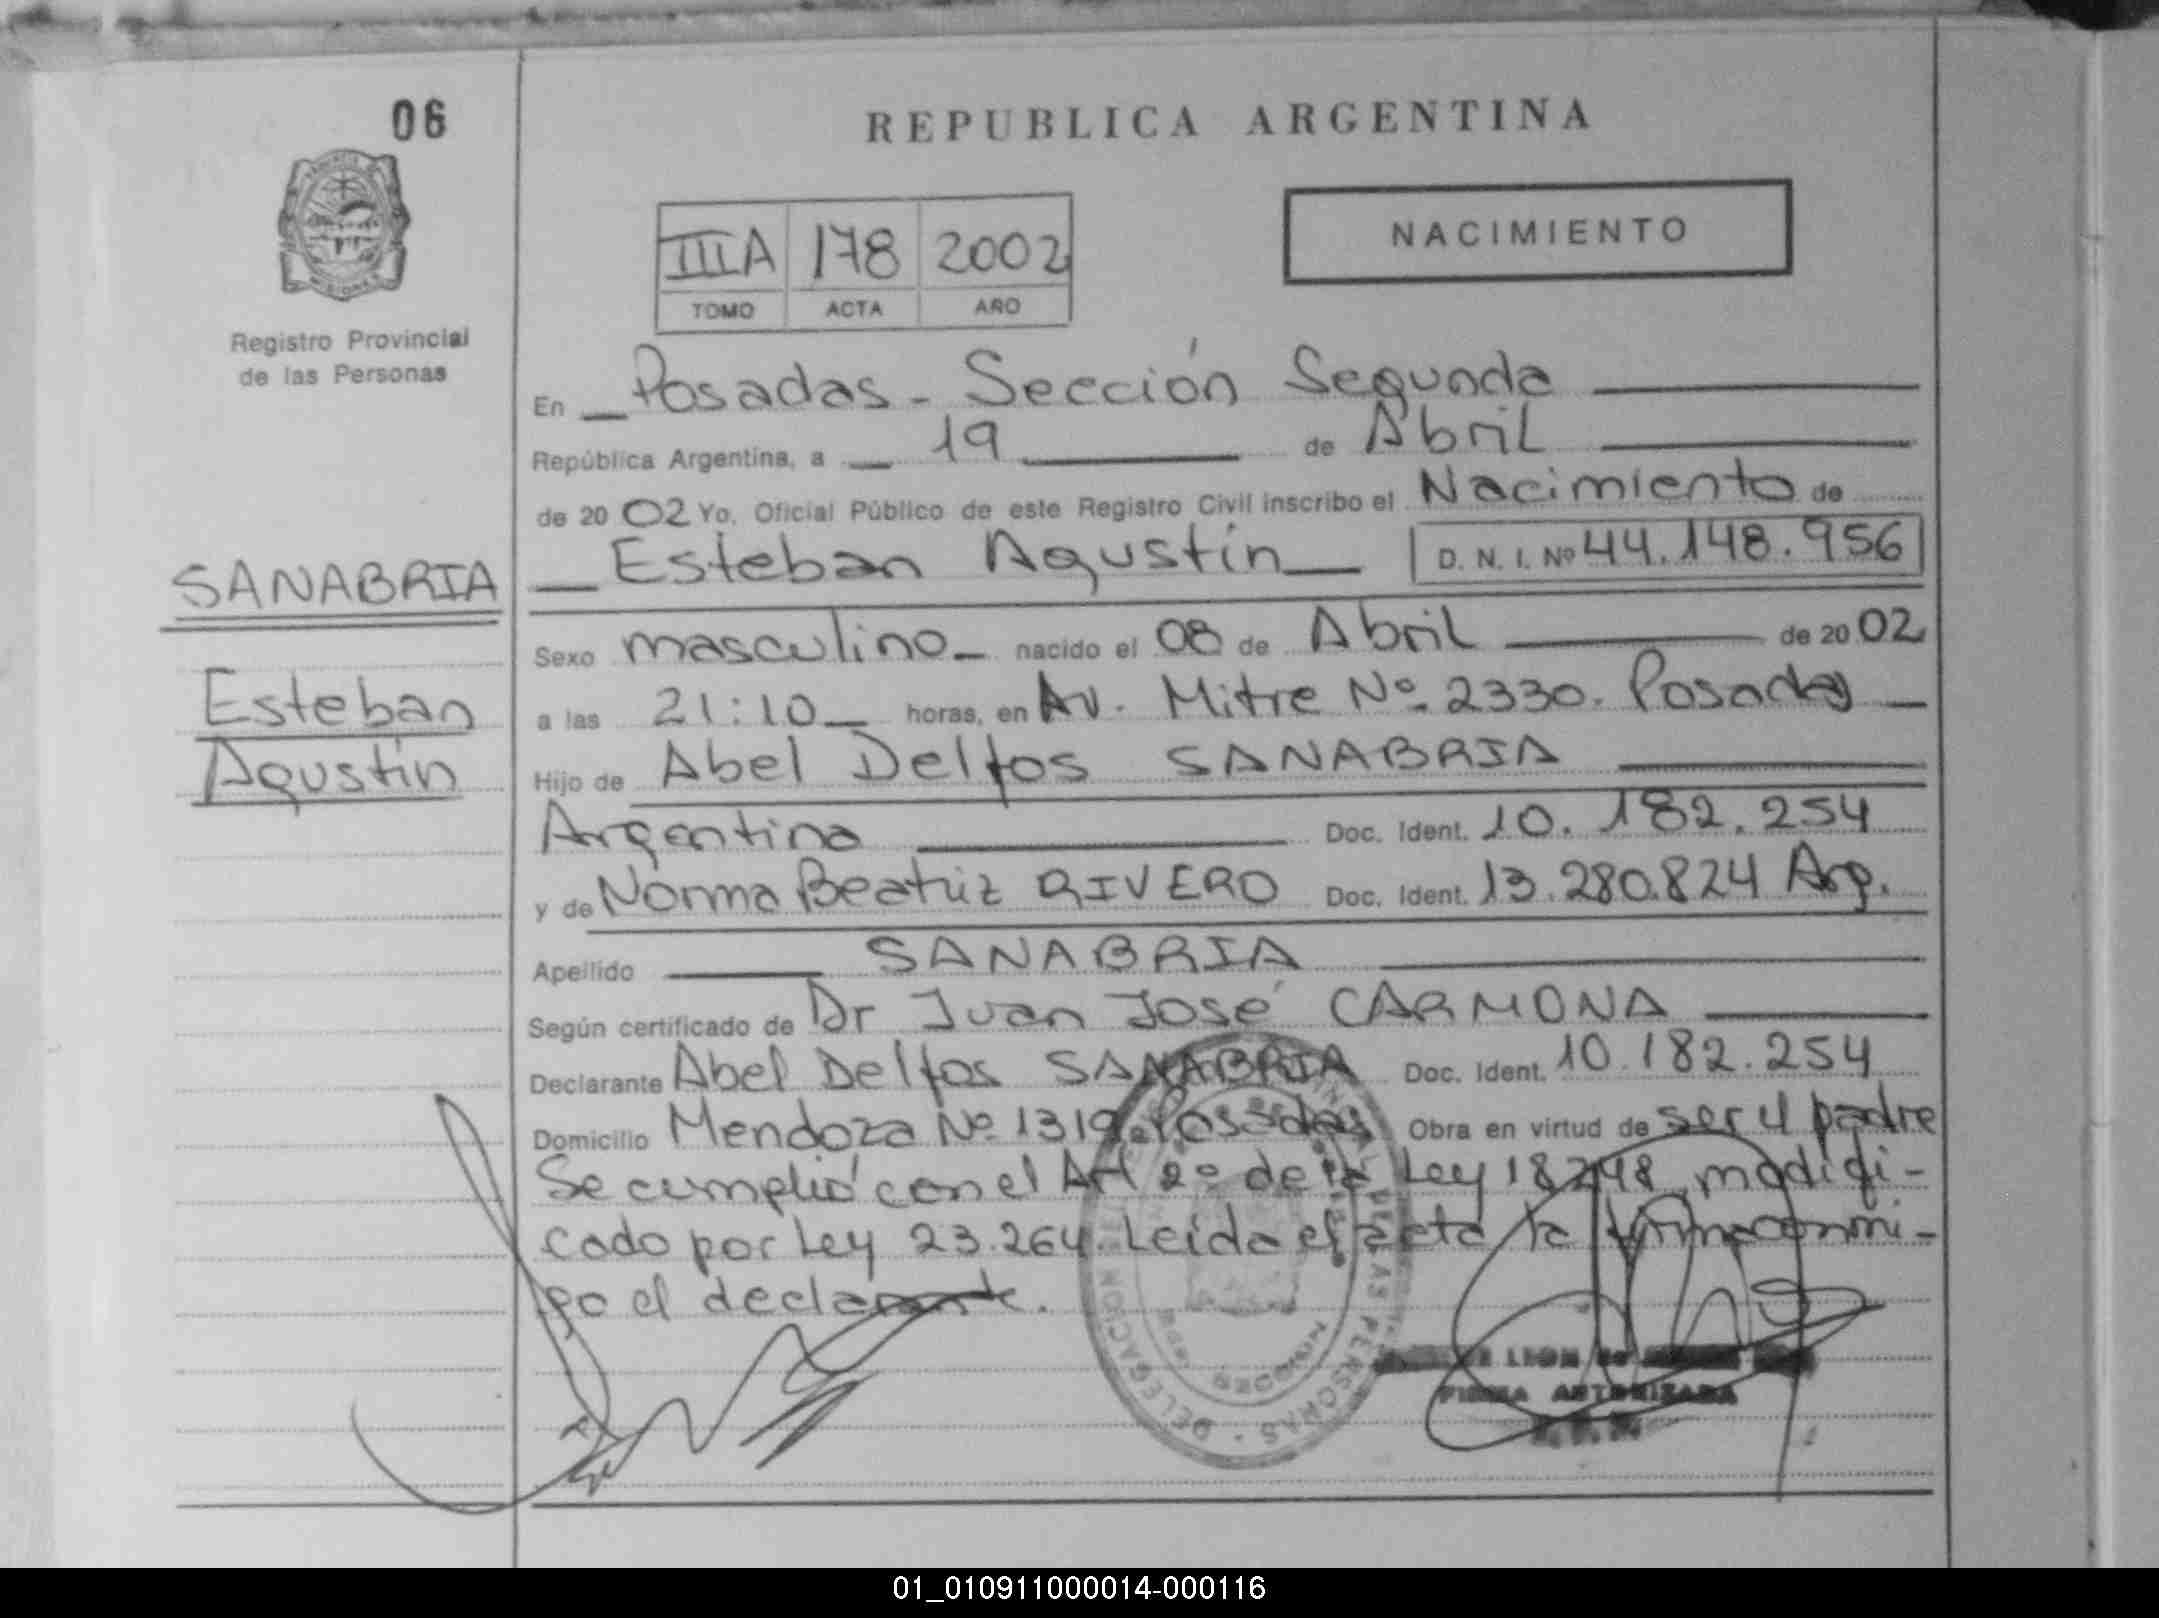 06
REPUBLICA ARGENTINA
NACIMIENTO
IIIA 178 2002
TOMO ACTA AÑO
Registro Provincial
de las Personas
En Posadas - Sección Segunda
República Argentina, a 19 de Abril
de 2002 Yo, Oficial Público de este Registro Civil inscribo el Nacimiento de
Esteban Agustín D. N. I. Nº 44.148.956
SANABRIA
Esteban
Agustín
Sexo masculino nacido el 08 de Abril de 2002
a las 21:10 horas, en Av. Mitre Nº 2330. Posadas
Hijo de Abel Delfos SANABRIA
Argentino Doc. Ident. 10.182.254
y de Norma Beatriz RIVERO Doc. Ident. 13.280.824 Arg.
Apellido SANABRIA
Según certificado de Dr Juan José CARMONA
Declarante Abel Delfos SANABRIA Doc. Ident. 10.182.254
Domicilio Mendoza Nº 1319. Posadas Obra en virtud de ser el padre
Se cumplió con el Art 2º de la Ley 18248, modifi-
cado por Ley 23.264. Leida el acta la firma conmi-
go el declarante.
DELEGACION
DE LAS PERSONAS
LEON
FIRMA AUTORIZADA
01_010911000014-000116